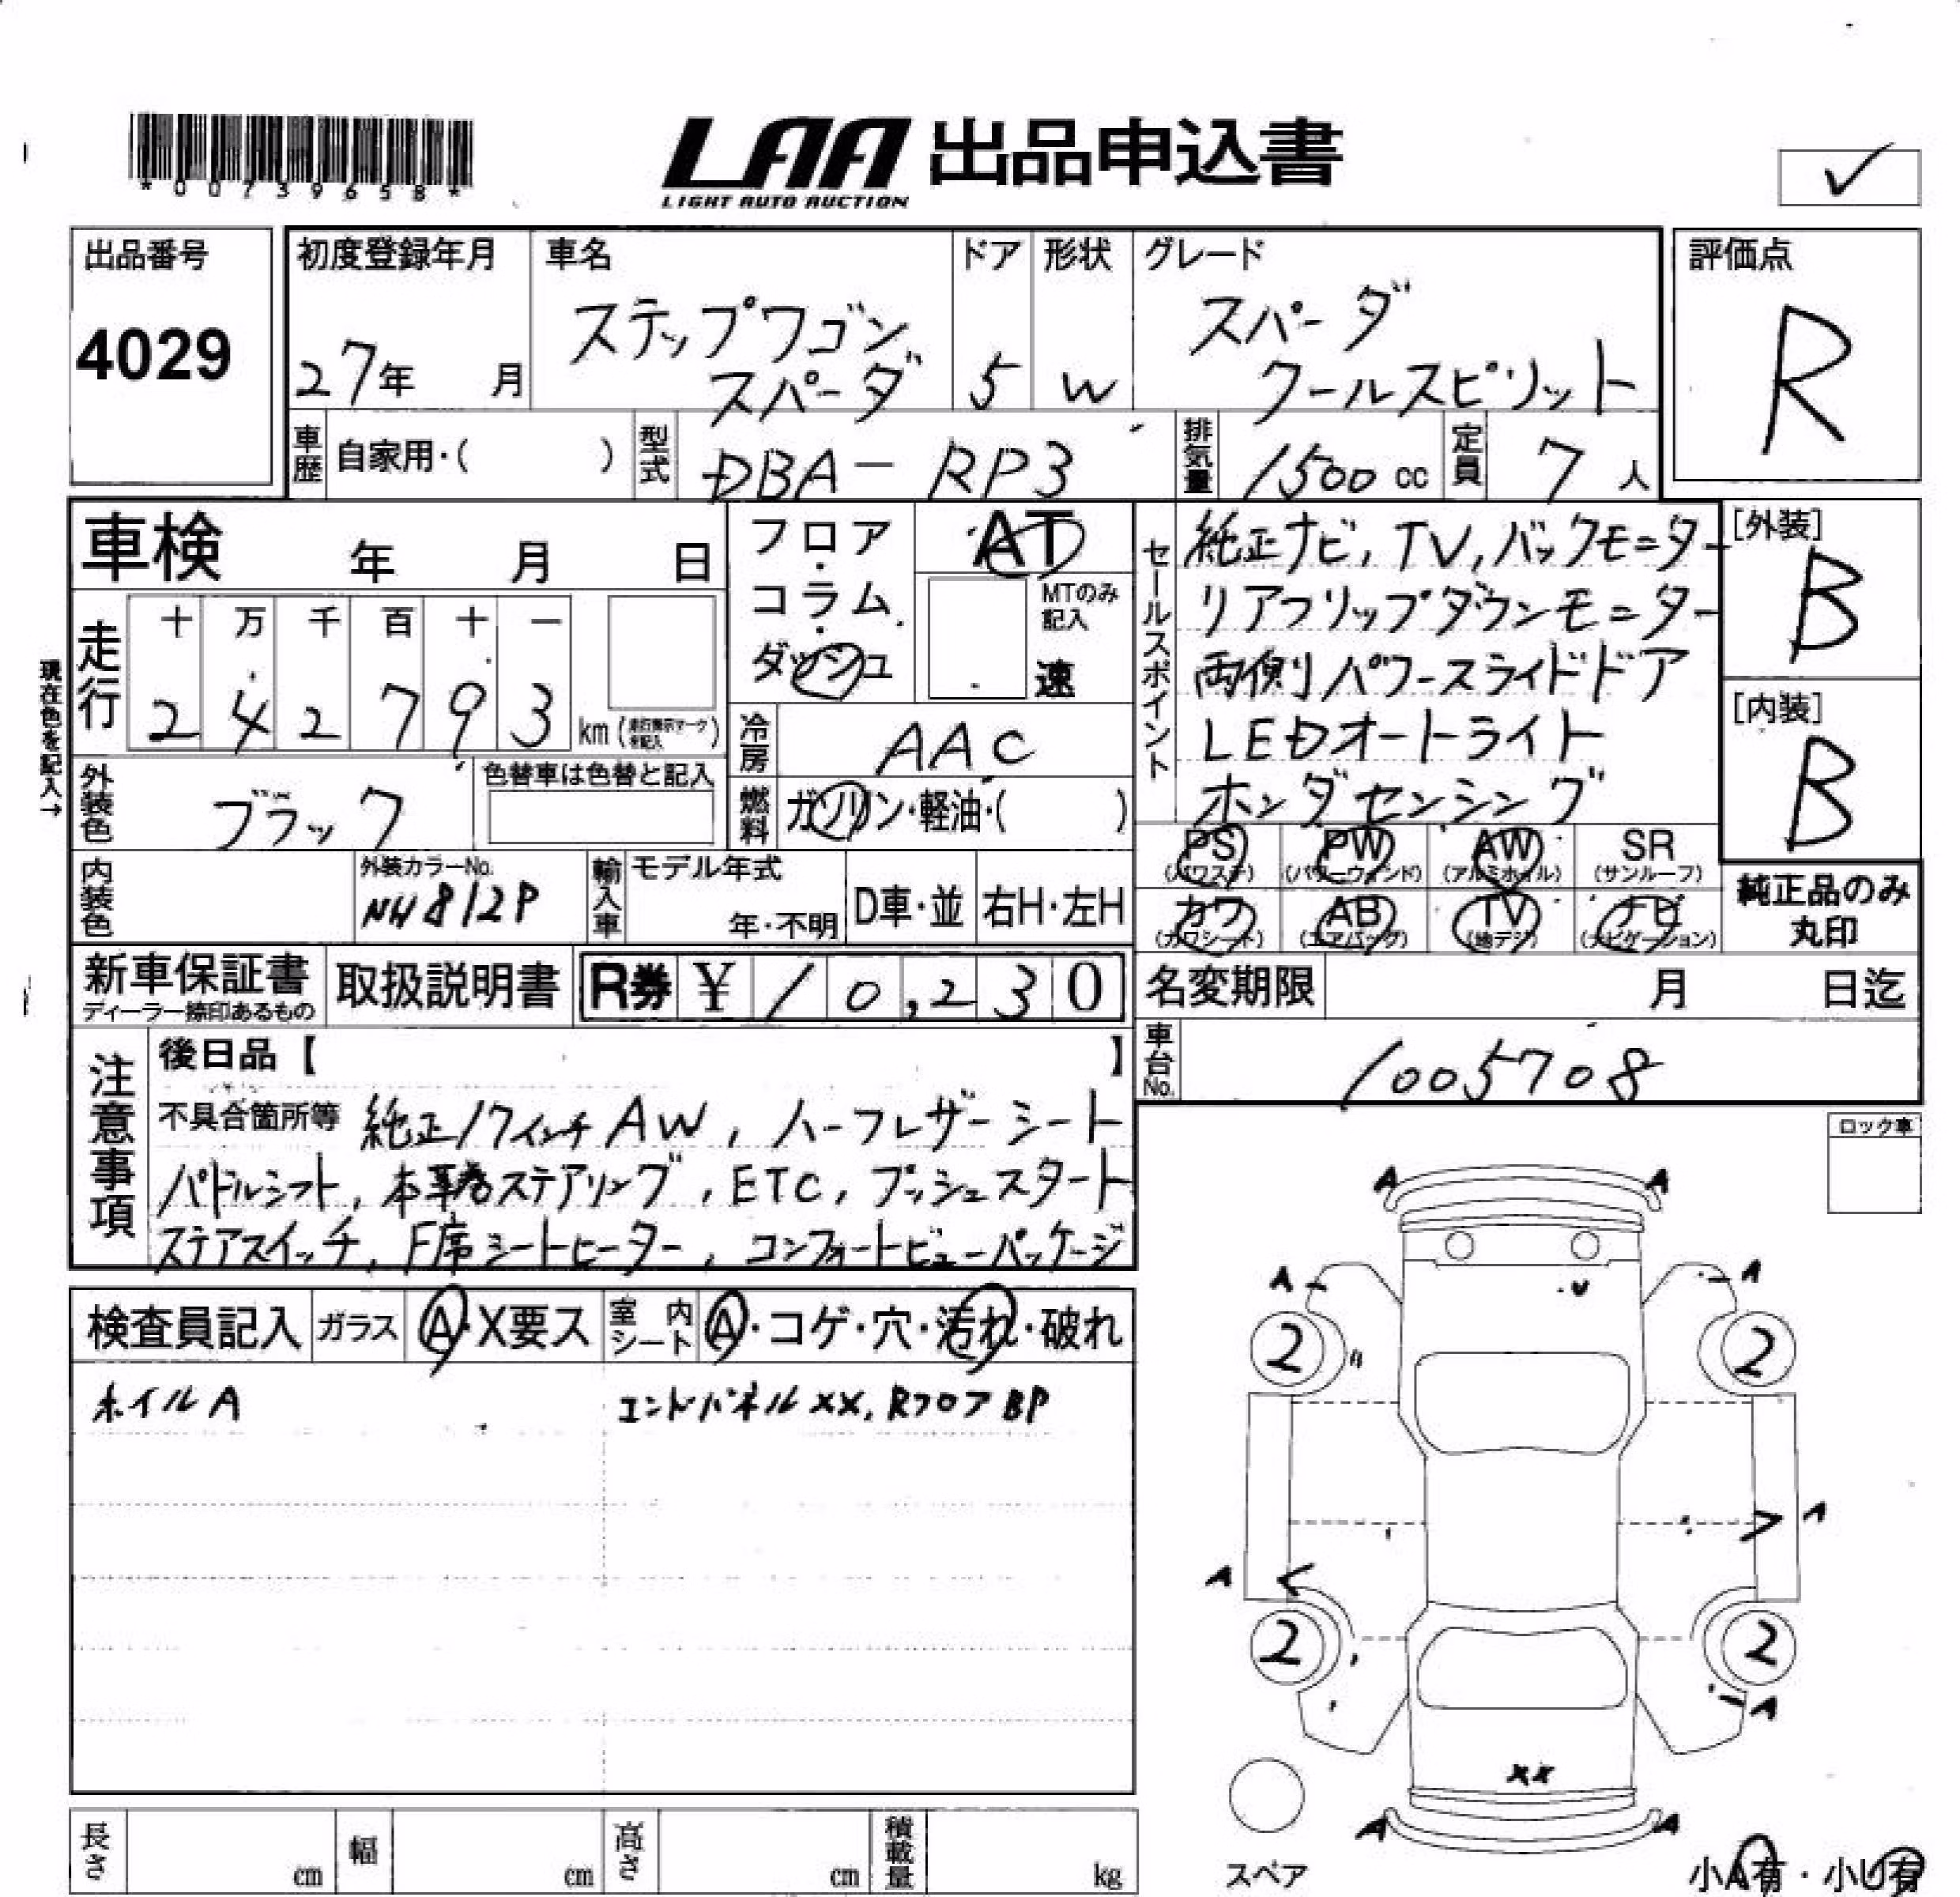 *00739658*
LAA 出品申込書
LIGHT AUTO AUCTION
✓
出品番号
4029
初度登録年月
27年 月
車名
ステップワゴン
スパーダ
ドア
5
形状
W
グレード
スパーダ
クールスピリット
評価点
R
車歴 自家用・( )
型式 DBA-RP3
排気量 1500 cc
定員 7 人
車検 年 月 日
フロア・コラム・ダッシュ
AT
MTのみ記入
速
走行
十 万 千 百 十 一
2 4 2 7 9 3 km
現在色を記入→
冷房 AAC
外装色 ブラック
色替車は色替と記入
燃料 ガソリン・軽油・( )
セールスポイント
純正ナビ, TV, バックモニター
リアフリップダウンモニター
両側パワースライドドア
LEDオートライト
ホンダセンシング
[外装]
B
[内装]
B
内装色
外装カラーNo.
NH812P
輸入車
モデル年式
年・不明
D車・並
右H・左H
PS PW AW SR
(パワステ) (パワーウィンド) (アルミホイル) (サンルーフ)
カワ AB TV ナビ
(カワシート) (エアバッグ) (地デジ) (ナビゲーション)
純正品のみ
丸印
新車保証書
ディーラー捺印あるもの
取扱説明書
R券 ¥10,230
名変期限 月 日迄
車台No. 1005708
注意事項
後日品【 】
不具合箇所等 純正17インチAW, ハーフレザーシート
パドルシフト, 本革巻ステアリング, ETC, プッシュスタート
ステアスイッチ, F席シートヒーター, コンフォートビューパッケージ
ロック車
検査員記入
ガラス A・X要ス
室内シート A・コゲ・穴・汚れ・破れ
ホイルA
エンドパネルXX, RフロアBP
A A
A A
U
2 2
A
A
A
2 2
A
XX
A A
スペア
小A有・小U有
長さ cm
幅 cm
高さ cm
積載量 kg